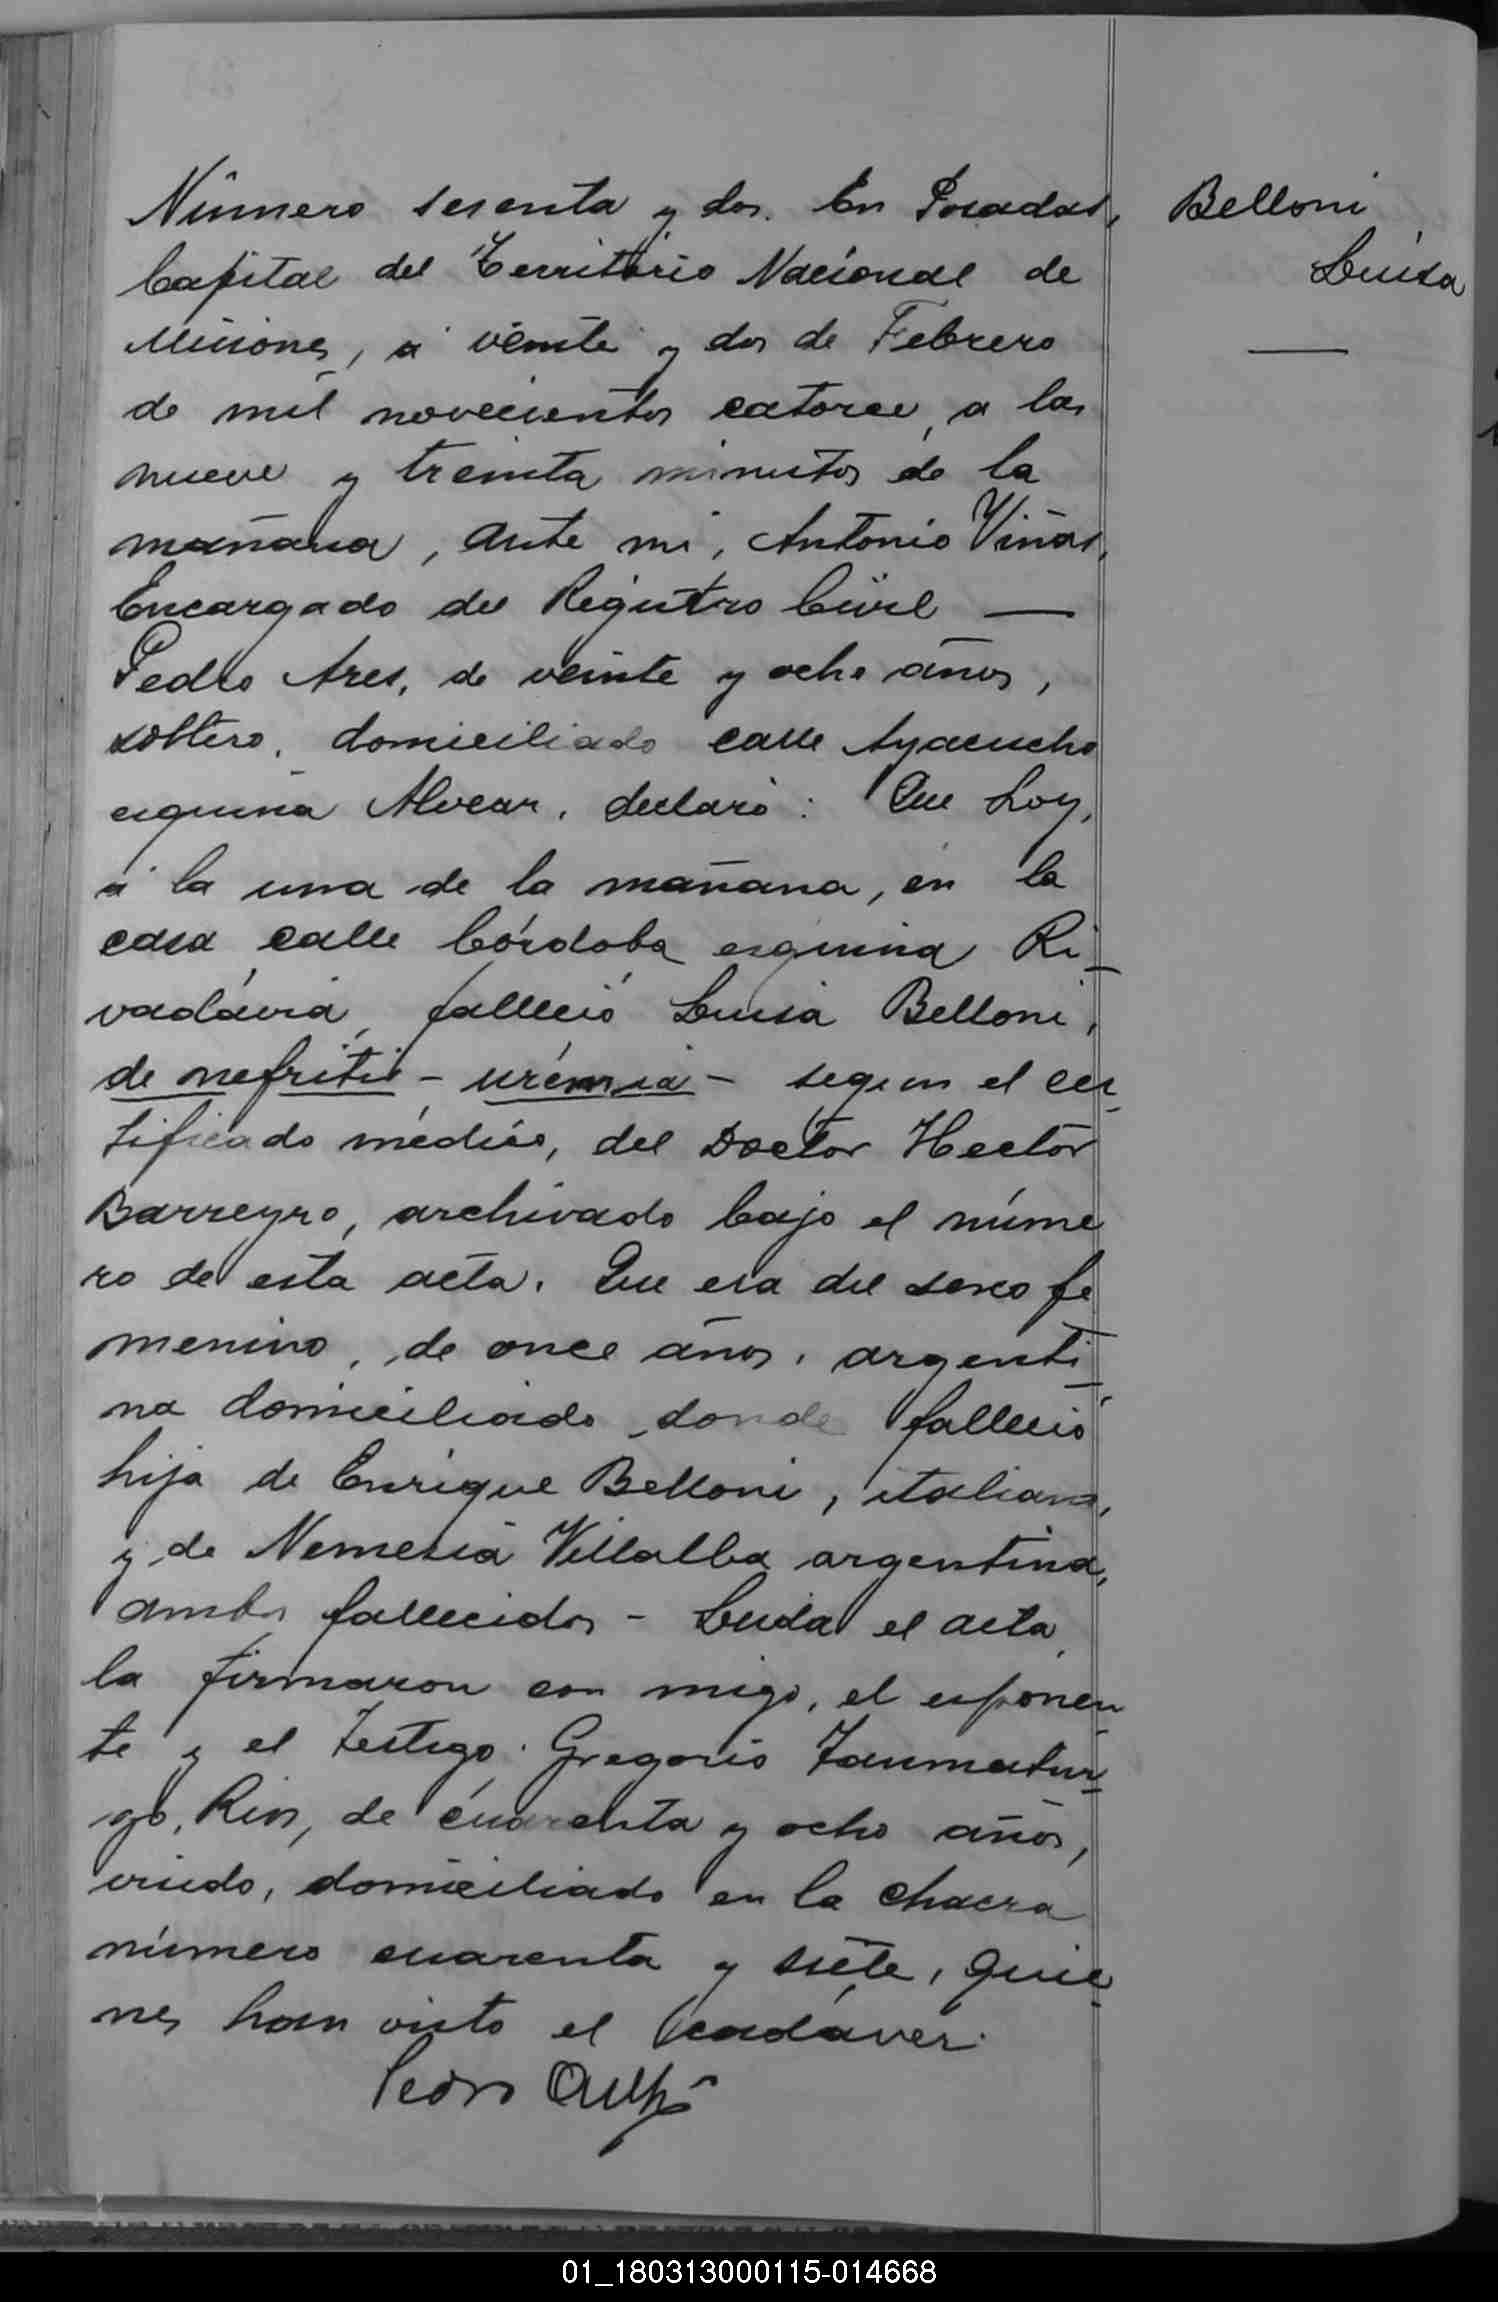 Número sesenta y dos. En Posadas,
Capital del Territorio Nacional de
Misiones, á veinte y dos de Febrero
de mil novecientos catorce, a las
nueve y treinta minutos de la
mañana, ante mi, Antonio Viñas,
Encargado del Registro Civil —
Pedro Ares, de veinte y ocho años,
soltero, domiciliado calle Ayacucho
esquina Alvear, declaró: Que hoy,
á la una de la mañana, en la
casa calle Córdoba esquina Ri-
vadavia, falleció Luisa Belloni,
de nefritis - urémia - segun el cer-
tificado médico, del Doctor Hector
Barreyro, archivado bajo el núme
ro de esta acta. Que era del sexo fe
menino, de once años, argenti-
na domiciliado donde falleció
hija de Enrique Belloni, italiano,
y de Nemesia Villalba argentina,
ambos fallecidos - Leida el acta,
la firmaron con migo, el esponen
te y el testigo: Gregorio Taumatur-
go, Rios, de cuarenta y ocho años,
viudo, domiciliado en la chacra
número cuarenta y siete, quie-
nes han visto el cadáver.
Pedro
Belloni
Luisa
01_180313000115-014668